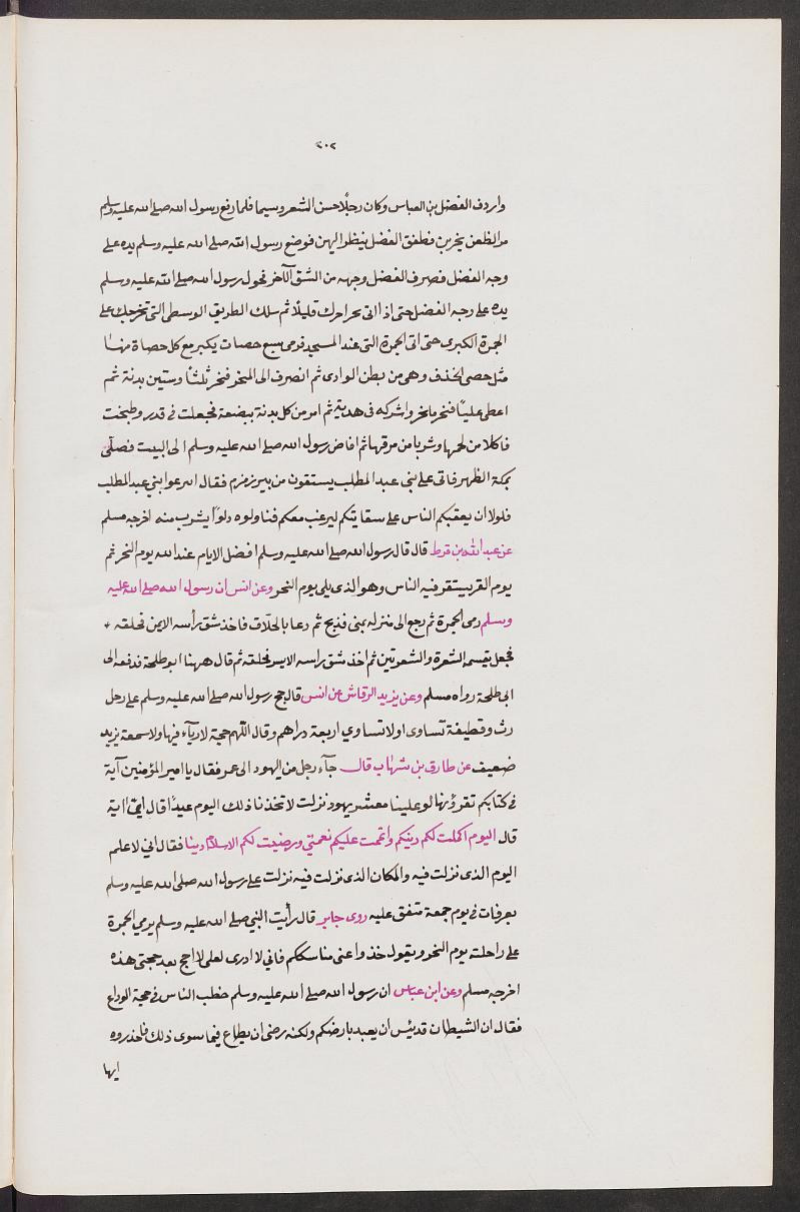 ٢٠٢
واردف الفضل بن العباس وكان رجلًا حسن الشعر وسيما فلما رفع رسول الله صلى الله عليه وسلم
مر الظعن يجرين فطفق الفضل ينظر اليهن فوضع رسول الله صلى الله عليه وسلم يده على
وجه الفضل فصرف الفضل وجهه من الشق الآخر فحول رسول الله صلى الله عليه وسلم
يده على وجه الفضل حتى اذا اتى محسرا حرك قليلًا ثم سلك الطريق الوسطى التى تخرجك على
الجمرة الكبرى حتى اتى الجمرة التى عند المسجد فرمى سبع حصات يكبر مع كل حصاة منها
مثل حصى الخذف وهى من بطن الوادى ثم انصرف الى المنحر فنحر ثلثًا وستين بدنة ثم
اعطى عليًا فنحر ما بخر واشركه فى هديه ثم امر من كل بدنة ببضعة فجعلت فى قدر وطبخت
فاكلا من لحمها وشربا من مرقها ثم افاض رسول الله صلى الله عليه وسلم الى البيت فصلّى
بمكة الظهر فاتى على بنى عبد المطلب يستقون من بير زمزم فقال اسرعوا بني عبد المطلب
فلولا ان يعقبكم الناس على سقايتكم ليرغب معكم فناولوه دلوًا يشرب منه اخرجه مسلم
عن عبد الله بن قرط قال قال رسول الله صلى الله عليه وسلم افضل الايام عند الله يوم النحر ثم
يوم القر يستقر فيه الناس وهو الذى يلى يوم النحر وعن انس ان رسول الله صلى الله عليه
وسلم رمى الجمرة ثم رجع الى منزله بمنى فذبح ثم دعا بالحلاق فاخذ شق رأسه الايمن فحلقه
فجعل يقسمه الشعرة والشعرتين ثم اخذ شق راسه الايسر فحلقه ثم قال ههنا ابو طلحة فدفعه الى
ابى طلحة رواه مسلم وعن يزيد الرقاش عن انس قال حج رسول الله صلى الله عليه وسلم على رحل
رث وقطيفة تساوى اولا تساوي اربعة دراهم وقال اللهم حجة لا ريآء فيها ولا سمعة يزيد
ضعيف عن طارق بن شهاب قال جآء رجل من اليهود الى عمر فقال يا امير المؤمنين آية
فى كتابكم تقرؤنها لو علينا معشر يهود نزلت لاتخذنا ذلك اليوم عيدًا قال ايّ اية
قال اليوم اكملت لكم دينكم واتممت عليكم نعمتي ورضيت لكم الاسلام دينا فقال اني لاعلم
اليوم الذى نزلت فيه والمكان الذى نزلت فيه نزلت على رسول الله صلى الله عليه وسلم
بعرفات في يوم جمعة متفق عليه روى جابر قال رأيت النبي صلى الله عليه وسلم يرمي الجمرة
على راحلته يوم النحر ويقول خذوا عنى مناسككم فاني لا ادرى لعلى لا احج بعد حجتى هذه
اخرجه مسلم وعن ابن عباس ان رسول الله صلى الله عليه وسلم خطب الناس فى حجة الوداع
فقال ان الشيطان قد يئس ان يعبد بارضكم ولكنه رضى ان يطاع فيما سوى ذلك فاحذروه
ايها